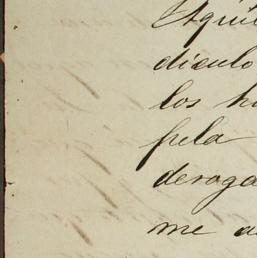 Aqui
diculo
los h
pela
deroga
me a